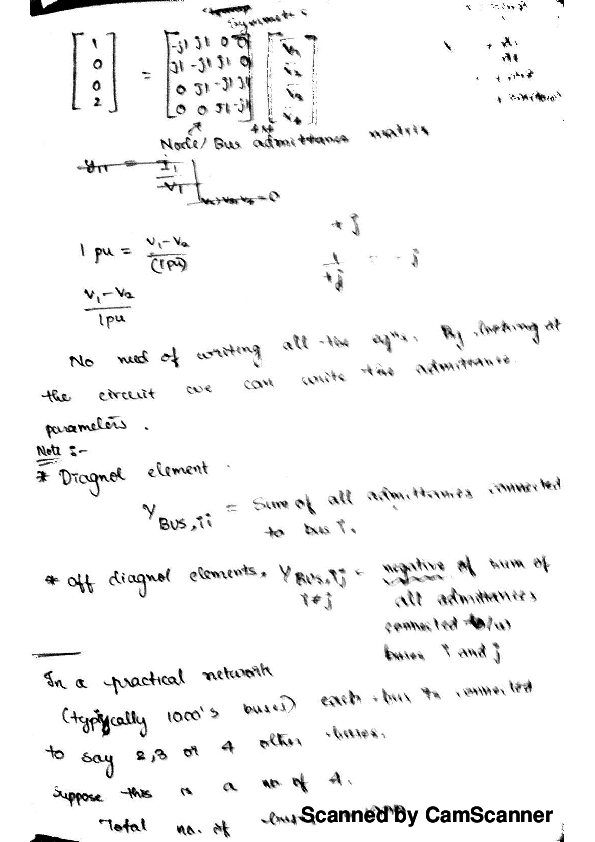 Symmetric
[1 0 0 2] = [-j1 j1 0 0
j1 -j1 j1 0
0 j1 -j1 j1
0 0 j1 -j1] [V1 V2 V3 V4]
4x4
Node/ Bus admittance matrix
Y11 = I1/V1 | V2=V3=V4=0
1 pu = V1-V2/(1pu)
+j
V1-V2/1pu
1/+j = -j
No need of writing all the eqns. By looking at
the circuit we can write the admittance
parameters.
Note :-
* Diagnol element
Y BUS,ii = Sum of all admittances connected
to bus i.
* off diagnol elements, Y BUS,ij = negative of sum of
i≠j all admittances
connected b/w
buses i and j
In a practical network
(typically 1000's buses) each bus is connected
to say 2,3 or 4 other buses.
Suppose this is a no of 4.
Total no. of
Scanned by CamScanner